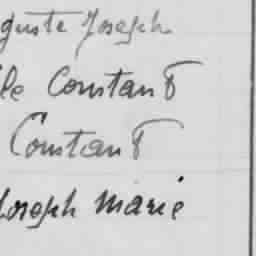 guste Joseph
le Constant
Constant
Joseph Marie